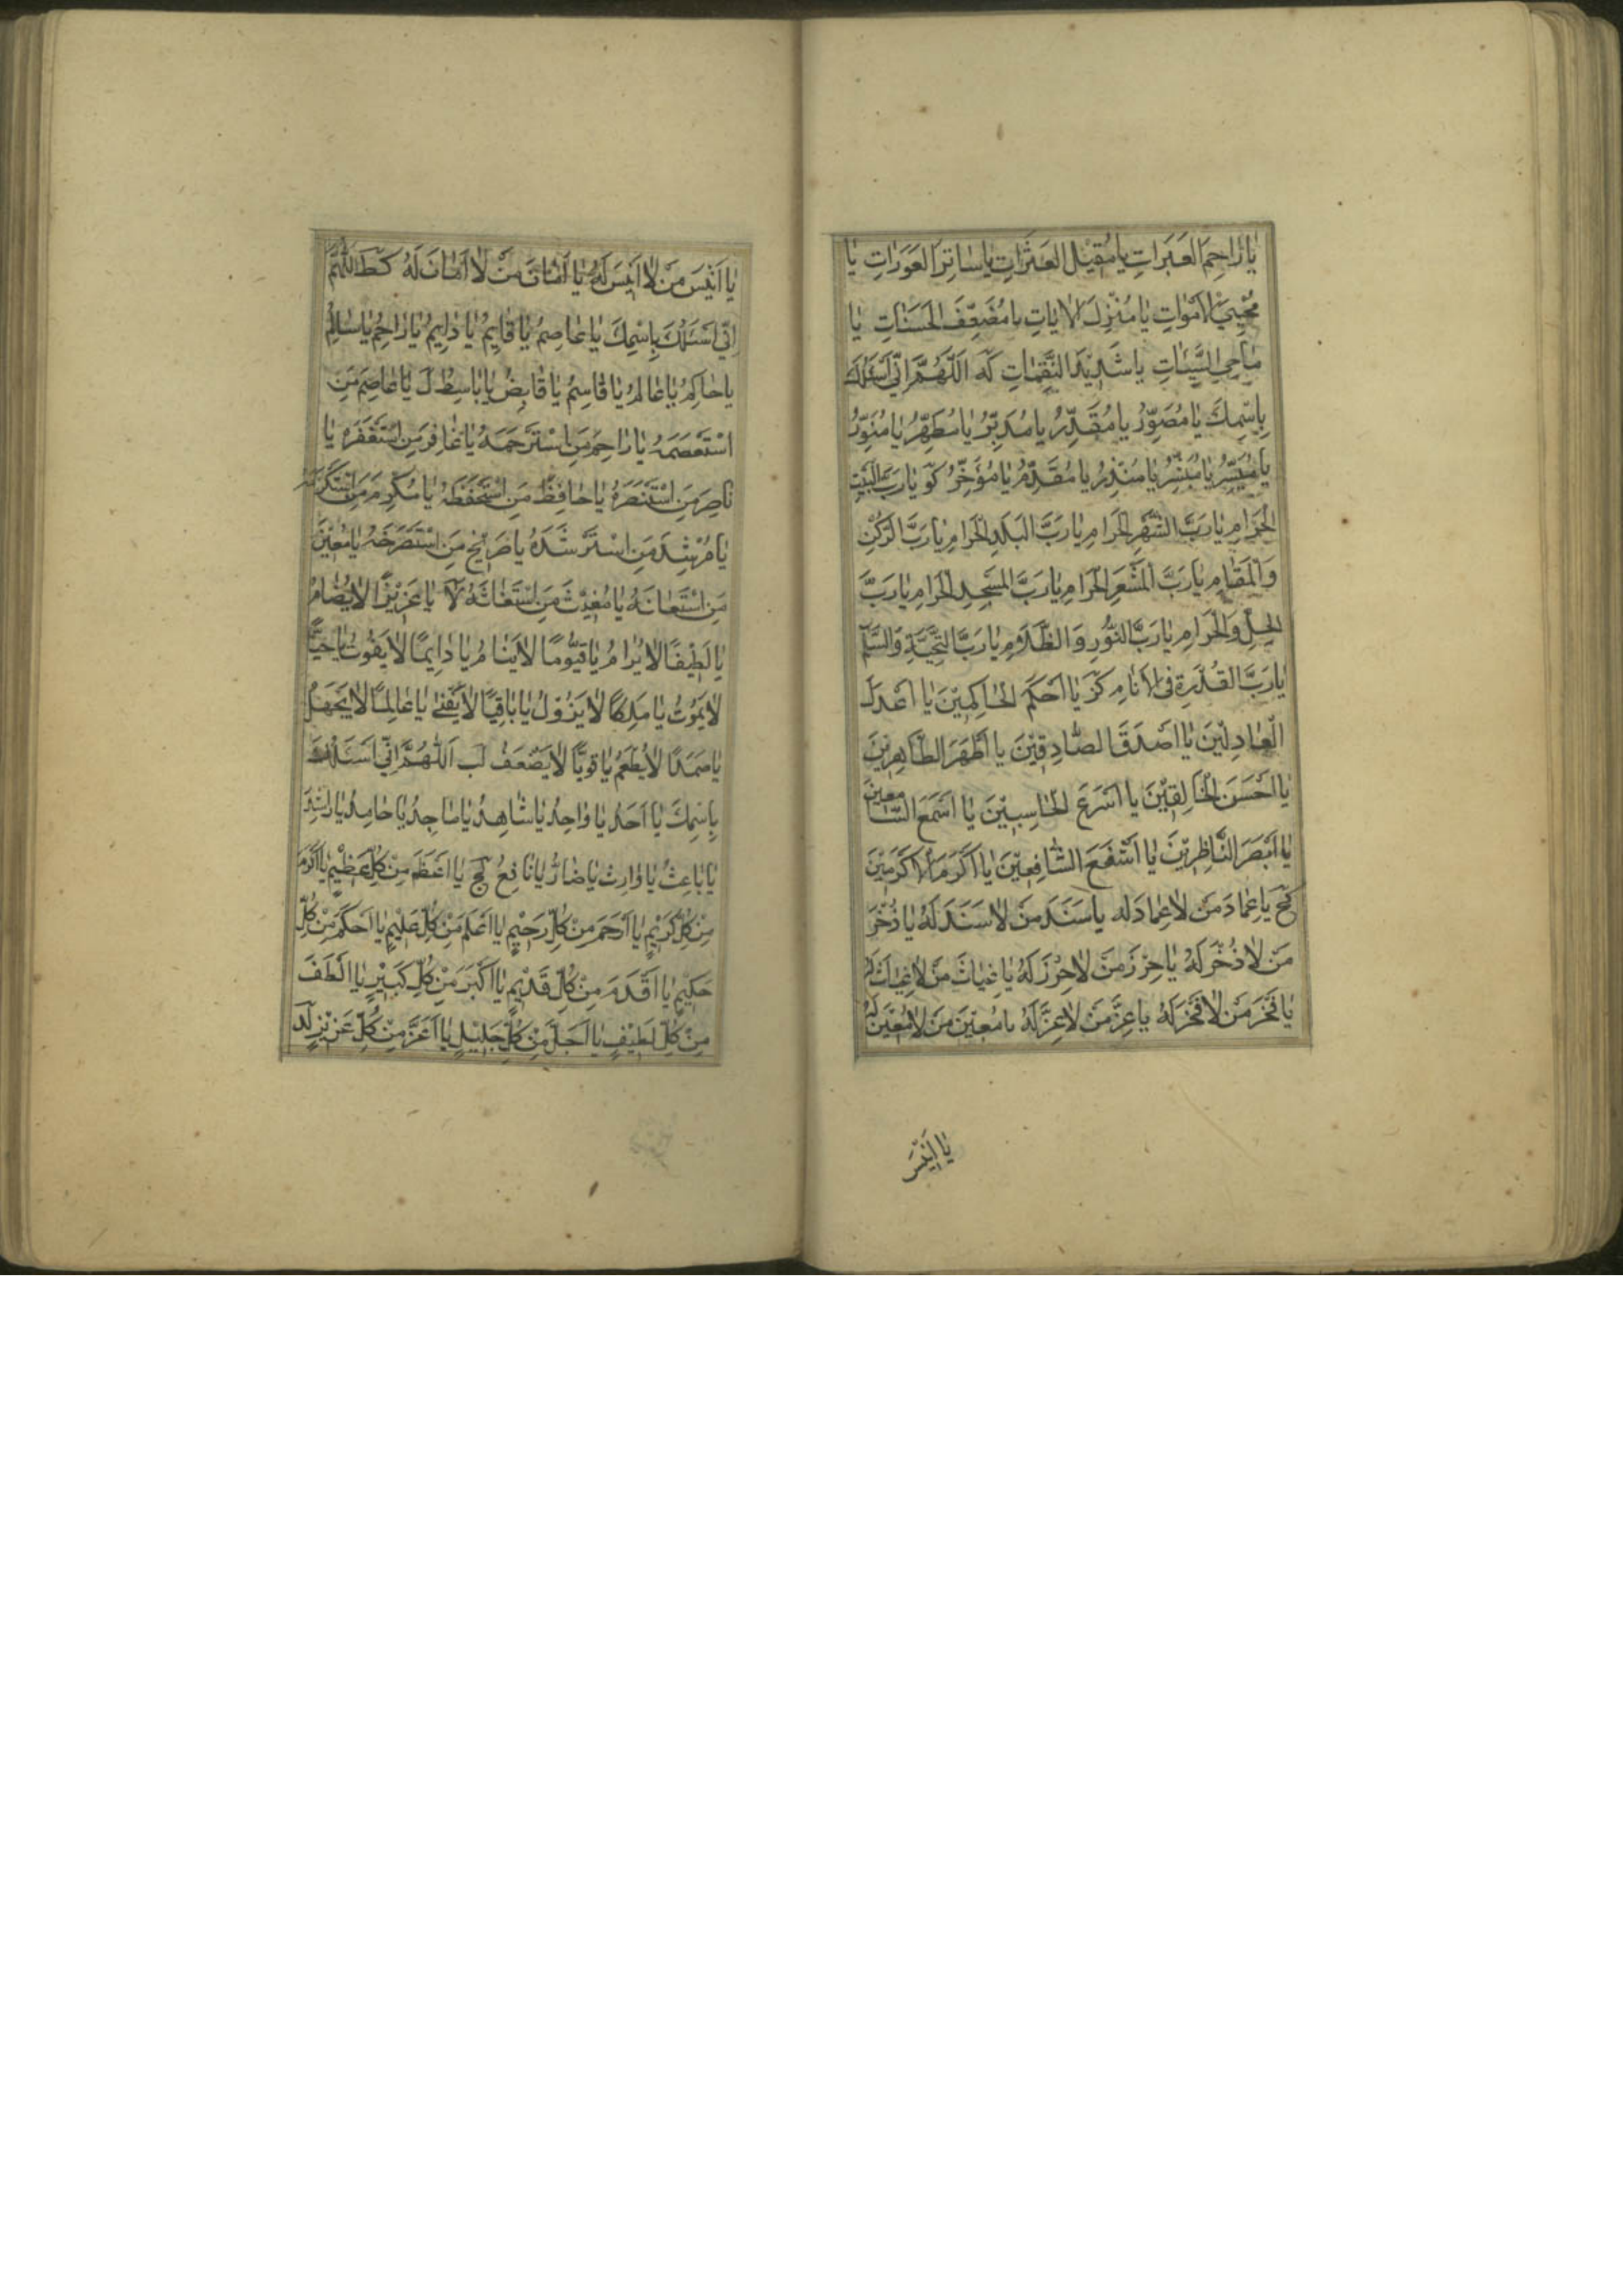 يَا رَاحِمَ العَبَرَاتِ يَا مُقِيْلَ العَثَرَاتِ يَا سَاتِرَ العَوَرَاتِ يَا
مُحْيِيَ الْاَمْوَاتِ يَا مُنْزِلَ الْاٰيَاتِ يَا مُضَعِّفَ الْحَسَنَاتِ يَا
مَاحِيَ السَّيِّئَاتِ يَا شَدِيْدَ النَّقِمَاتِ كَه اَللّٰهُمَّ اِنِّي اَسْئَلُكَ
بِاسْمِكَ يَا مُصَوِّرُ يَا مُقَدِّرُ يَا مُدَبِّرُ يَا مُطَهِّرُ يَا مُنَوِّرُ
يَا مُيَسِّرُ يَا مُبَشِّرُ يَا مُنْذِرُ يَا مُقَدِّمُ يَا مُؤَخِّرُ كَو يَا رَبَّ الْبَيْتِ
الْحَرَامِ يَا رَبَّ الشَّهْرِ الْحَرَامِ يَا رَبَّ الْبَلَدِ الْحَرَامِ يَا رَبَّ الرُّكْنِ
وَالْمَقَامِ يَا رَبَّ الْمَشْعَرِ الْحَرَامِ يَا رَبَّ الْمَسْجِدِ الْحَرَامِ يَا رَبَّ
الْحِلِّ وَالْحَرَامِ يَا رَبَّ النُّوْرِ وَالظَّلَامِ يَا رَبَّ التَّحِيَّةِ وَالسَّلَامِ
يَا رَبَّ الْقُدْرَةِ فِي الْاَنَامِ كَز يَا اَحْكَمَ الْحَاكِمِيْنَ يَا اَعْدَلَ
الْعَادِلِيْنَ يَا اَصْدَقَ الصَّادِقِيْنَ يَا اَطْهَرَ الطَّاهِرِيْنَ
يَا اَحْسَنَ الْخَالِقِيْنَ يَا اَسْرَعَ الْحَاسِبِيْنَ يَا اَسْمَعَ السَّامِعِيْنَ
يَا اَبْصَرَ النَّاظِرِيْنَ يَا اَشْفَعَ الشَّافِعِيْنَ يَا اَكْرَمَ الْاَكْرَمِيْنَ
كَح يَا عِمَادَ مَنْ لَا عِمَادَ لَه يَا سَنَدَ مَنْ لَا سَنَدَ لَهُ يَا ذُخْرَ
مَنْ لَا ذُخْرَ لَهُ يَا حِرْزَ مَنْ لَا حِرْزَ لَهُ يَا غِيَاثَ مَنْ لَا غِيَاثَ لَهُ
يَا فَخْرَ مَنْ لَا فَخْرَ لَهُ يَا عِزَّ مَنْ لَا عِزَّ لَهُ يَا مُعِيْنَ مَنْ لَا مُعِيْنَ لَهُ
يَا اَنِيْسَ
يَا اَنِيْسَ مَنْ لَا اَنِيْسَ لَهُ يَا اَمَانَ مَنْ لَا اَمَانَ لَهُ كَط اَللّٰهُمَّ
اِنِّي اَسْئَلُكَ بِاسْمِكَ يَا عَاصِمُ يَا قَايِمُ يَا دَايِمُ يَا رَاحِمُ يَا سَالِمُ
يَا حَاكِمُ يَا عَالِمُ يَا قَاسِمُ يَا قَابِضُ يَا بَاسِطُ ل يَا عَاصِمَ مَنِ
اسْتَعْصَمَهُ يَا رَاحِمَ مَنِ اسْتَرْحَمَهُ يَا غَافِرَ مَنِ اسْتَغْفَرَهُ يَا
نَاصِرَ مَنِ اسْتَنْصَرَهُ يَا حَافِظَ مَنِ اسْتَحْفَظَهُ يَا مُكْرِمَ مَنِ اسْتَكْرَمَهُ
يَا مُرْشِدَ مَنِ اسْتَرْشَدَهُ يَا صَرِيْخَ مَنِ اسْتَصْرَخَهُ يَا مُعِيْنَ
مَنِ اسْتَعَانَهُ يَا مُغِيْثَ مَنِ اسْتَغَاثَهُ لَا يَا عَزِيْزًا لَا يُضَامُ
يَا لَطِيْفًا لَا يُرَامُ يَا قَيُّوْمًا لَا يَنَامُ يَا دَايِمًا لَا يَفُوْتُ يَا حَيًّا
لَا يَمُوْتُ يَا مَلِكًا لَا يَزُوْلُ يَا بَاقِيًا لَا يَفْنٰى يَا عَالِمًا لَا يَجْهَلُ
يَا صَمَدًا لَا يُطْعَمُ يَا قَوِيًّا لَا يَضْعَفُ لب اَللّٰهُمَّ اِنِّي اَسْئَلُكَ
بِاسْمِكَ يَا اَحَدُ يَا وَاحِدُ يَا شَاهِدُ يَا مَاجِدُ يَا حَامِدُ يَا رَاشِدُ
يَا بَاعِثُ يَا وَارِثُ يَا ضَارُّ يَا نَافِعُ لج يَا اَعْظَمَ مِنْ كُلِّ عَظِيْمٍ يَا اَكْرَمَ
مِنْ كُلِّ كَرِيْمٍ يَا اَرْحَمَ مِنْ كُلِّ رَحِيْمٍ يَا اَعْلَمَ مِنْ كُلِّ عَلِيْمٍ يَا اَحْكَمَ مِنْ كُلِّ
حَكِيْمٍ يَا اَقْدَمَ مِنْ كُلِّ قَدِيْمٍ يَا اَكْبَرَ مِنْ كُلِّ كَبِيْرٍ يَا اَلْطَفَ
مِنْ كُلِّ لَطِيْفٍ يَا اَجَلَّ مِنْ كُلِّ جَلِيْلٍ يَا اَعَزَّ مِنْ كُلِّ عَزِيْزٍ لد